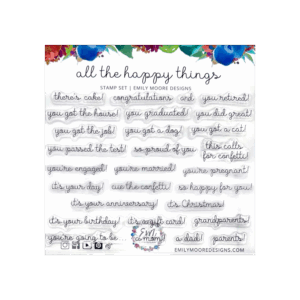 all the happy things
STAMP SET | EMILY MOORE DESIGNS
there's cake! congratulations and you retired!
you got the house! you graduated! you did great!
you got the job! you got a dog! you got a cat!
you passed the test! so proud of you this calls for confetti!
you're engaged! you're married! you're pregnant!
it's your day! cue the confetti! so happy for you!
it's your anniversary! it's Christmas!
it's your birthday! it's a gift card! grandparents!
you're going to be a dad! parents!
EMILYMOOREDESIGNS.COM